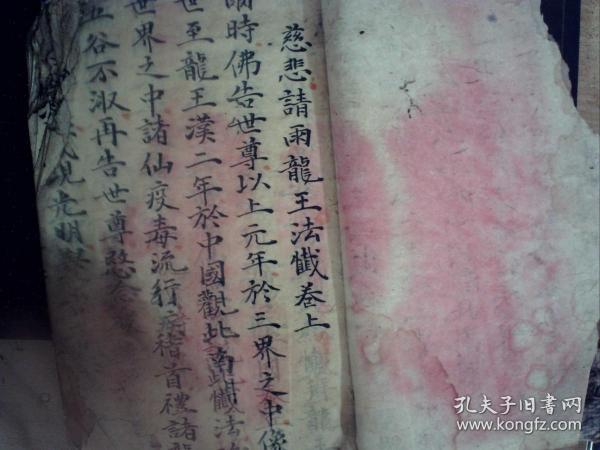 慈悲請雨龍王法懺卷上
爾時佛告世尊以上元年於三界之中
世至龍王漢二年於中國觀此南此懺法
世界之中諸仙疫毒流行病稽首禮諸龍
五谷不淑再告世尊
見光明
孔夫子旧书网